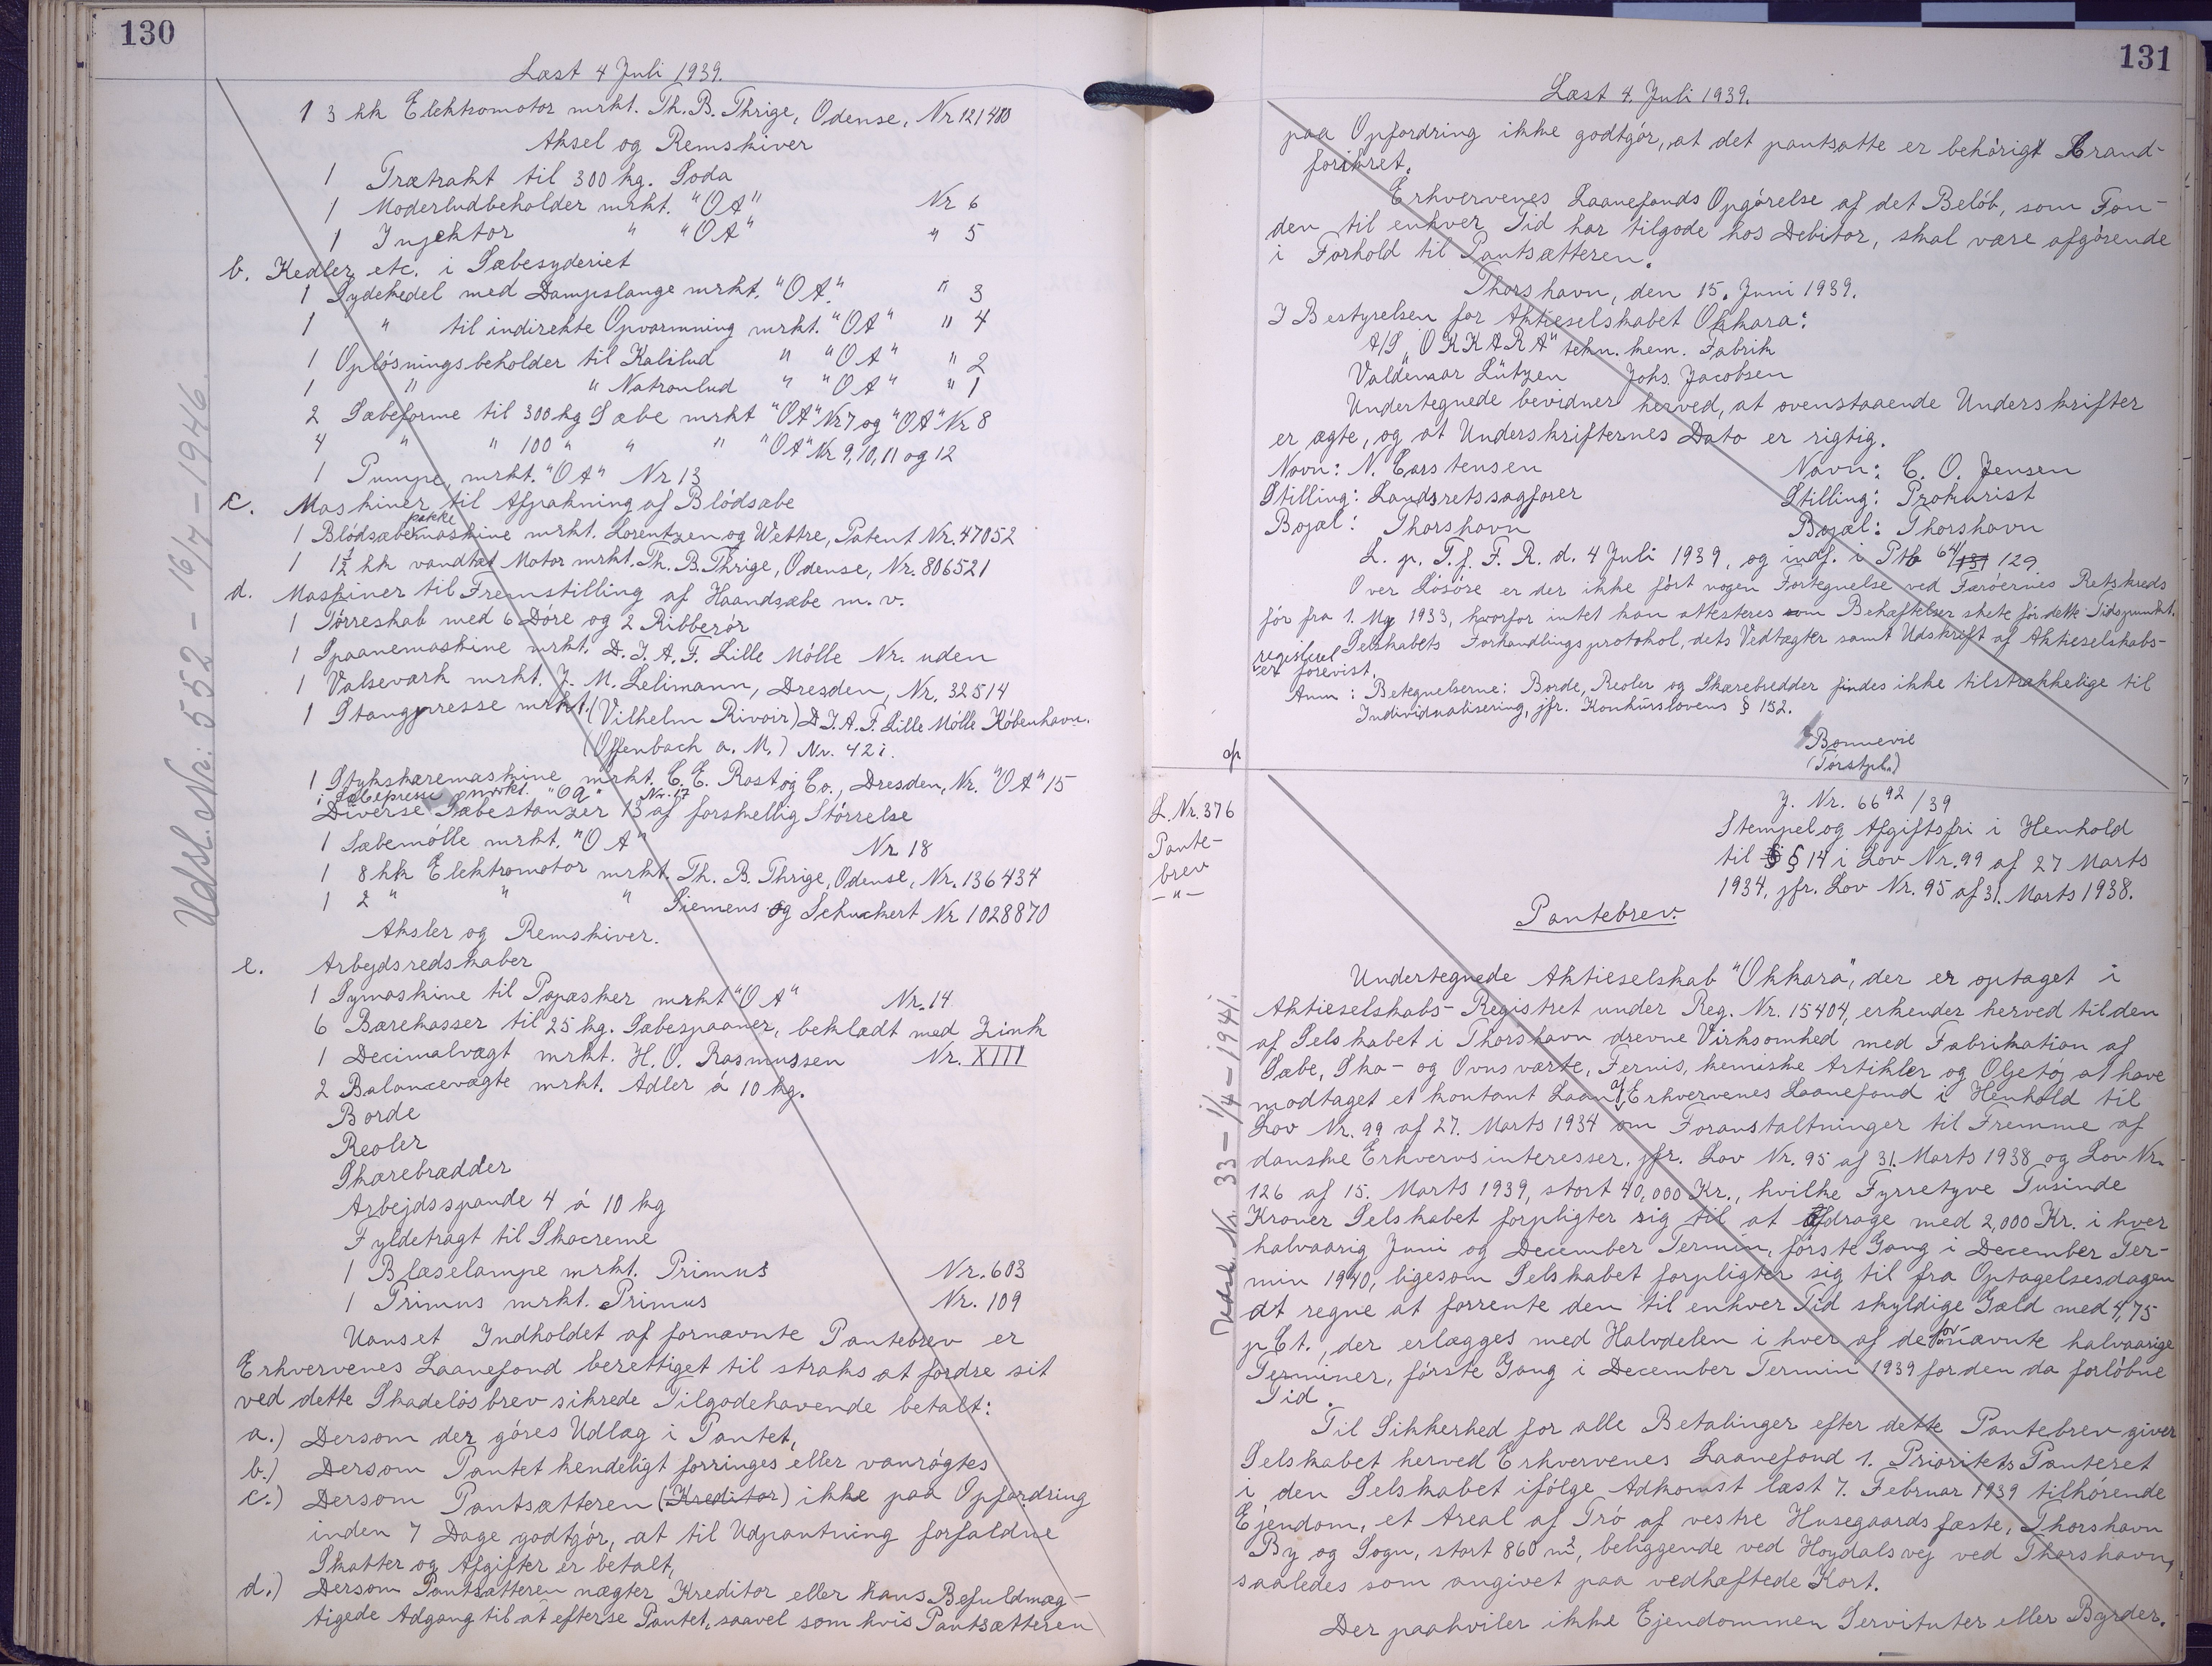 130
Læst 4 Juli 1939.
1 3 hk Elektromotor mrkt. Th. B. Thrige, Odense, Nr 121480
Aksel og Remskiver
1 Trætrakt til 300 kg. Soda
1 Moderludbeholder mrkt. "OA" Nr 6
1 Injektor " "OA" " 5
b. Kedler etc. i Sæbesyderiet
1 Sydekedel med Dampslange mrkt. "OA." " 3
1 " til indirekte Opvarmning mrkt. "OA" " 4
1 Opløsningsbeholder til Kalilud " "OA" " 2
1 " " Natronlud " "OA" " 1
2 Sæbeforme til 300 kg Sæbe mrkt "OA" Nr 7 og "OA" Nr 8
4 " " 100 " " " "OA" Nr 9, 10, 11 og 12
1 Pumpe, mrkt. "OA" Nr 13
c. Maskiner til Afpakning af Blødsæbe
1 Blødsæbepakkemaskine mrkt. Lorentzen og Wettre, Patent Nr. 47052
1 1½ hk vandtæt Motor mrkt. Th. B. Thrige, Odense, Nr. 806521
d. Maskiner til Fremstilling af Haandsæbe m. v.
1 Tørreskab med 6 Døre og 2 Ribberør
1 Spaanemaskine mrkt. D. I. A. F. Lille Mølle Nr. uden
1 Valseværk mrkt. J. M. Lelimann, Dresden, Nr. 32514
1 Stangpresse mrkt. (Vilhelm Rivoir) D. I. A. F. Lille Mølle København.
(Offenbach a. M.) Nr. 421.
1 Stykskæremaskine mrkt. C. E. Rost og Co., Dresden, Nr. "OA" 15
1 Sæbepresse mrkt. "OA" Nr. 17
Diverse Sæbestanzer 13 af forskellig Størrelse
1 Sæbemølle mrkt. "OA" Nr 18
1 8 hk Elektromotor mrkt. Th. B. Thrige, Odense, Nr. 136434
1 2 " " " Siemens og Schuckert Nr 1028870
Aksler og Remskiver.
e. Arbejdsredskaber
1 Symaskine til Papæsker mrkt "OA" Nr. 14
6 Bærekasser til 25 kg. Sæbespaaner, beklædt med Zink
1 Decimalvægt mrkt. H. O. Rasmussen Nr. XIII
2 Balancevægte mrkt. Adler á 10 kg.
Borde
Reoler
Skærebrædder
Arbejdsspande 4 á 10 kg
Fyldetragt til Skocreme
1 Blæselampe mrkt. Primus Nr. 603
1 Primus mrkt. Primus Nr. 109
Uanset Indholdet af fornævnte Pantebrev er
Erhvervenes Laanefond berettiget til straks at fordre sit
ved dette Skadeløsbrev sikrede Tilgodehavende betalt:
a.) Dersom der gøres Udlæg i Pantet,
b.) Dersom Pantet kendeligt forringes eller vanrøgtes
c.) Dersom Pantsætteren (Kreditor) ikke paa Opfordring
inden 7 Dage godtgør, at til Udpantning forfaldne
Skatter og Afgifter er betalt,
d.) Dersom Pantsætteren nægter Kreditor eller hans Befuldmæg-
tigede Adgang til at efterse Pantet, saavel som hvis Pantsætteren
Udsl. Nr. 552 - 16/7 - 1946
131
Læst 4. Juli 1939.
paa Opfordring ikke godtgør, at det pantsatte er behørigt Brand-
forsikret.
Erhvervenes Laanefonds Opgørelse af det Beløb, som Fon-
den til enhver Tid har tilgode hos Debitor, skal være afgørende
i Forhold til Pantsætteren.
Thorshavn, den 15. Juni 1939.
I Bestyrelsen for Aktieselskabet Okkara:
A/S "OKKARA" tekn. kem. Fabrik
Valdemar Lützen Johs. Jacobsen
Undertegnede bevidner herved, at ovenstaaende Underskrifter
er ægte, og at Underskrifternes Dato er rigtig.
Navn: N. Carstensen Navn: C. O. Jensen
Stilling: Landsretssagfører Stilling: Prokurist
Bopæl: Thorshavn Bopæl: Thorshavn
L. p. T. f. F. R. d. 4 Juli 1939, og indf. i Ptb 64/131 129
Over Løsøre er der ikke ført nogen Fortegnelse ved Færøernes Retskreds
før fra 1. Maj 1933, hvorfor intet kan attesteres om Behæftelser skete før dette Tidspunkt.
Selskabets Forhandlingsprotokol, dets Vedtægter samt Udskrift af Aktieselskabs-
registeret
er forevist.
Anm: Betegnelserne: Borde, Reoler og Skærebrædder findes ikke tilstrækkelige til
Individualisering, jfr. Konkurslovens § 152.
Bonnevie
(Torstpl.)
J. Nr. 66⁹² / 39
Stempel og Afgiftsfri i Henhold
til § 14 i Lov Nr. 99 af 27 Marts
1934, jfr. Lov Nr. 95 af 31. Marts 1938.
L. Nr. 376
Pante-
brev
- " -
Pantebrev.
Undertegnede Aktieselskab "Okkara", der er optaget i
Aktieselskabs-Registret under Reg. Nr. 15404, erkender herved til den
af Selskabet i Thorshavn drevne Virksomhed med Fabrikation af
Sæbe, Sko- og Ovnsværte, Fernis, kemiske Artikler og Oljetøj at have
modtaget et kontant Laan af Erhvervenes Laanefond i Henhold til
Lov Nr. 99 af 27. Marts 1934 om Foranstaltninger til Fremme af
danske Erhvervsinteresser, jfr. Lov Nr. 95 af 31. Marts 1938 og Lov Nr.
126 af 15. Marts 1939, stort 40,000 Kr., hvilke Fyrretyve Tusinde
Kroner Selskabet forpligter sig til at afdrage med 2,000 Kr. i hver
halvaarig Juni og December Termin, første Gang i December Ter-
min 1940, ligesom Selskabet forpligter sig til fra Optagelsesdagen
at regne at forrente den til enhver Tid skyldige Gæld med 4,75
pCt., der erlægges med Halvdelen i hver af de fornævnte halvaarige
Terminer, første Gang i December Termin 1939 for den da forløbne
Tid.
Til Sikkerhed for alle Betalinger efter dette Pantebrev giver
Selskabet herved Erhvervenes Laanefond 1. Prioritets Panteret
i den Selskabet ifølge Adkomst læst 7. Februar 1939 tilhørende
Ejendom, et Areal af Trø af vestre Husegaards fæste, Thorshavn
By og Sogn, stort 860 m², beliggende ved Hoydalsvej ved Thorshavn,
saaledes som angivet paa vedhæftede Kort.
Der paahviler ikke Ejendommen Servituter eller Byrder.
Udsl. Nr. 33 - 1/4 - 1941.